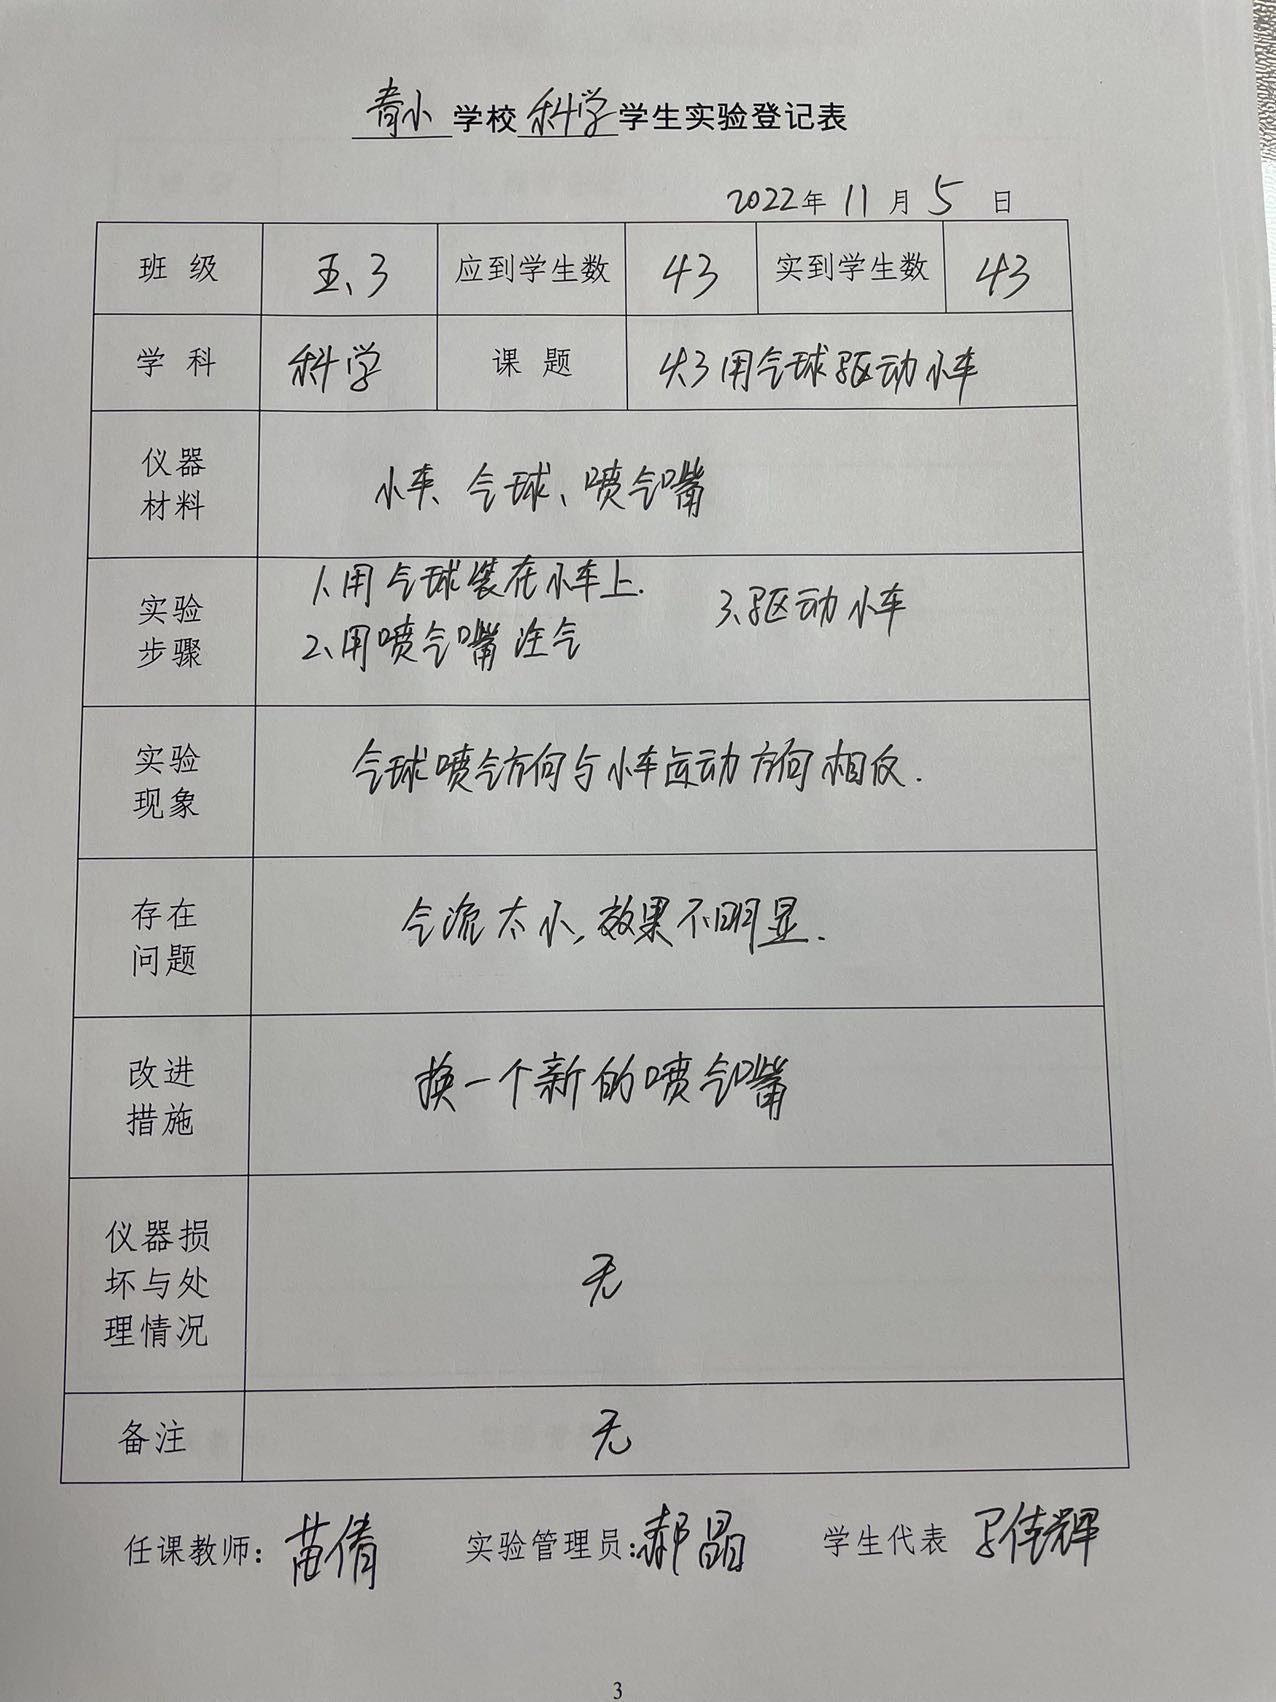 青小学校科学学生实验登记表
2022年 11月 5日
班 级 五、3 应到学生数 43 实到学生数 43
学 科 科学 课 题 4.3用气球驱动小车
仪器
材料
小车、气球、喷气嘴
实验
步骤
1、用气球装在小车上.
2、用喷气嘴注气
3、驱动小车
实验
现象
气球喷气方向与小车运动方向相反.
存在
问题
气流太小,效果不明显.
改进
措施
换一个新的喷气嘴
仪器损
坏与处
理情况
无
备注 无
任课教师:苗倩 实验管理员:郝晶 学生代表 佳辉
3